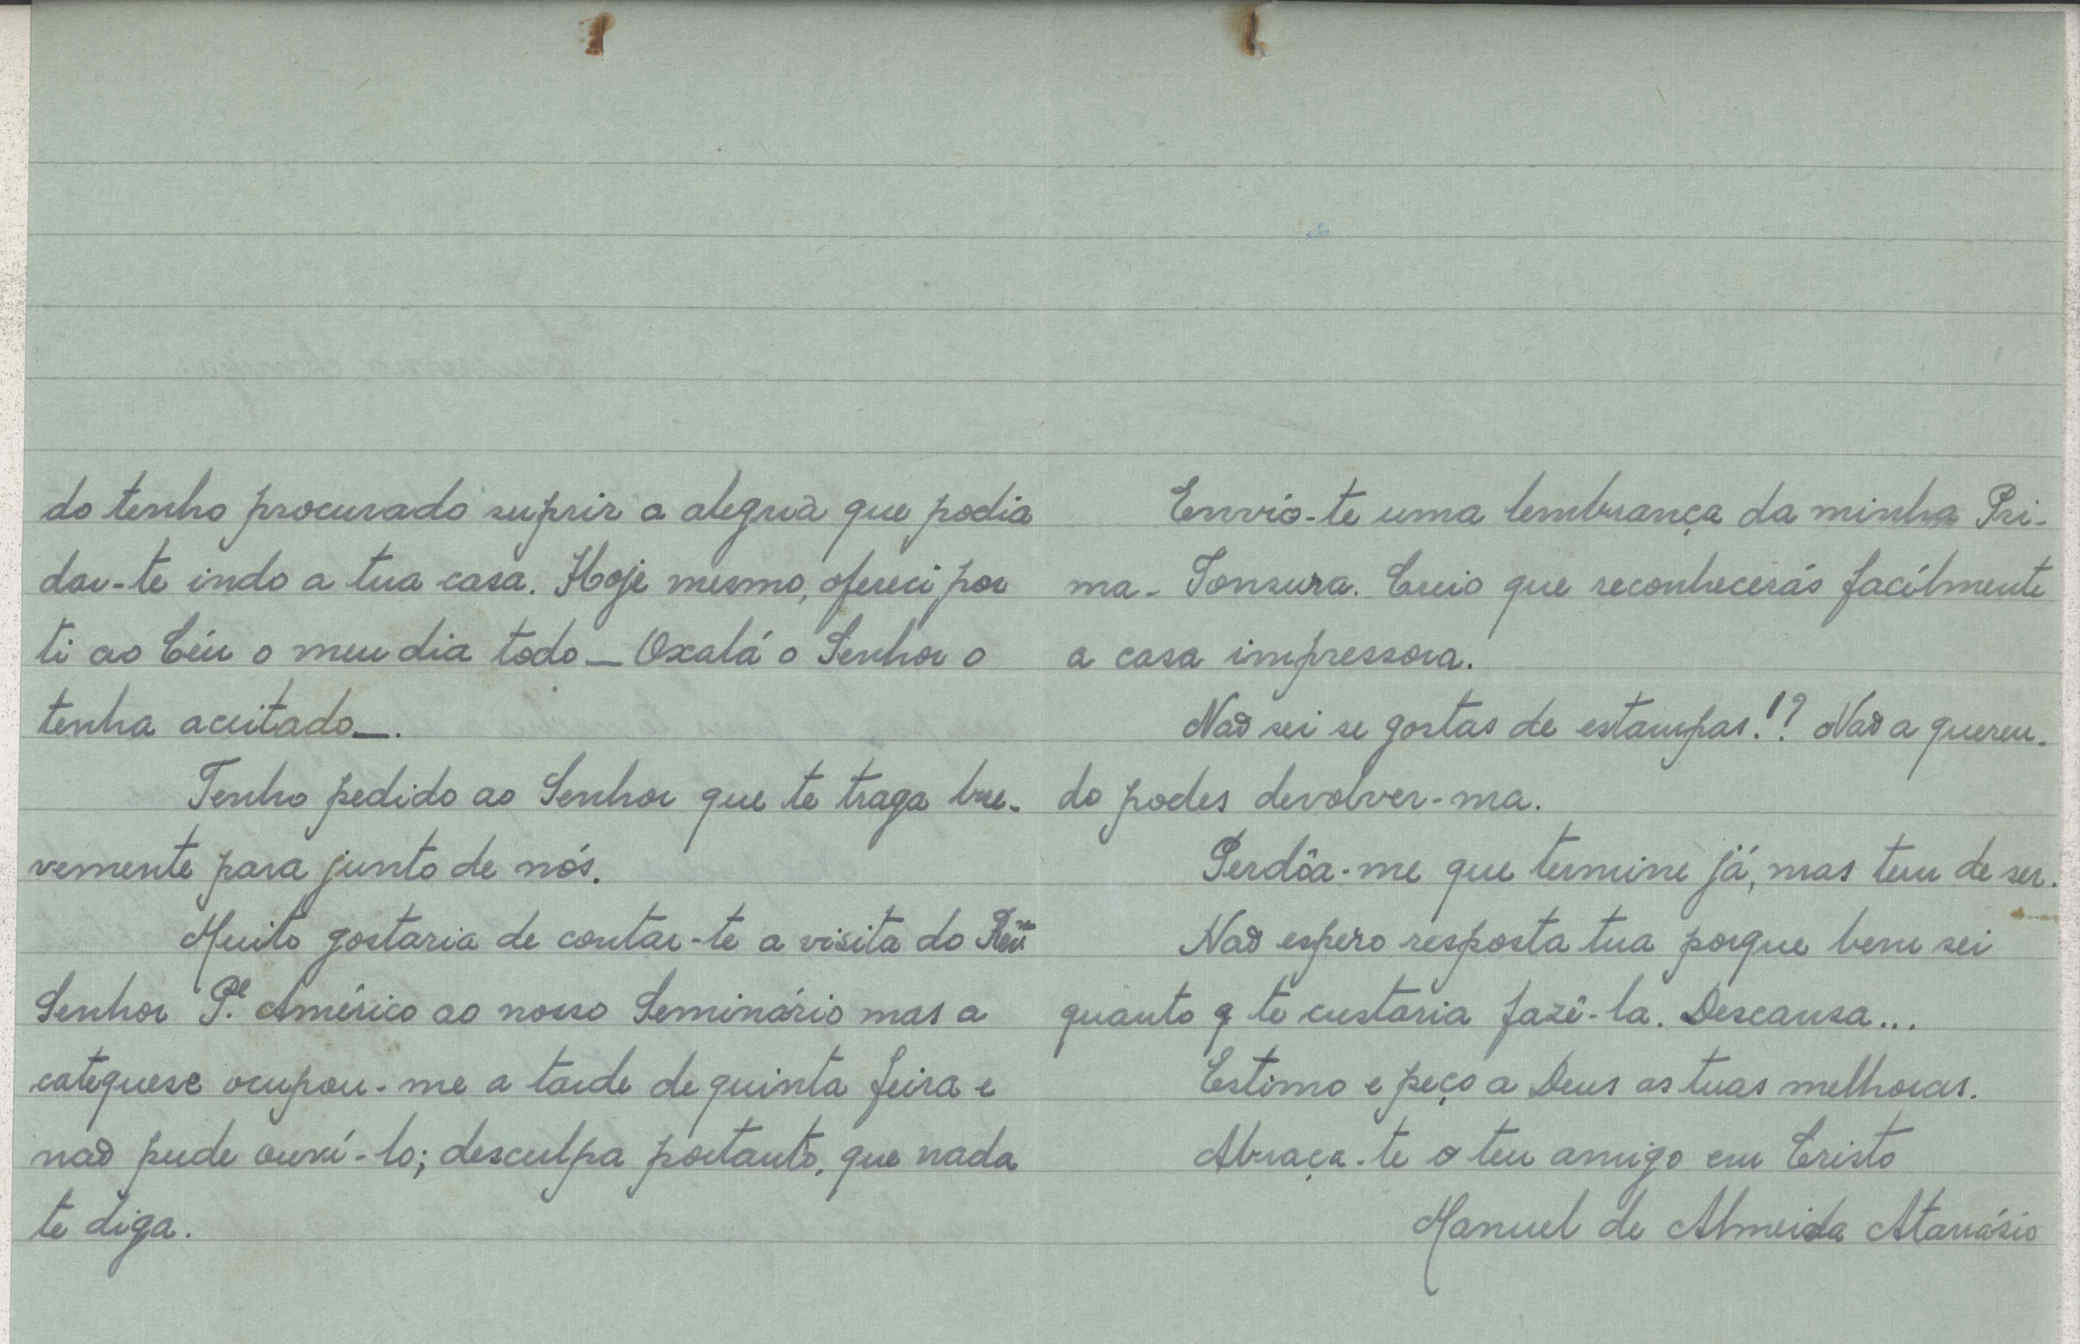 do tenho procurado suprir a alegria que podia
dar-te indo a tua casa. Hoje mesmo, ofereci por
ti ao Céu o meu dia todo — Oxalá o Senhor o
tenha aceitado —.
Tenho pedido ao Senhor que te traga bre-
vemente para junto de nós.
Muito gostaria de contar-te a visita do
Senhor P.e Américo ao nosso Seminário mas a
catequese ocupou-me a tarde de quinta feira e
não pude ouví-lo; desculpa portanto, que nada
te diga.
Envio-te uma lembrança da minha Pri-
ma-Tonsura. Creio que reconhecerás facílmente
a casa impressora.
Não sei se gostas de estampas!? Não a queren-
do podes devolver-ma.
Perdôa-me que termine já, mas tem de ser.
Não espero resposta tua porque bem sei
quanto q te custaria fazê-la. Descansa...
Estimo e peço a Deus as tuas melhoras.
Abraça-te o teu amigo em Cristo
Manuel de Almeida Atanásio